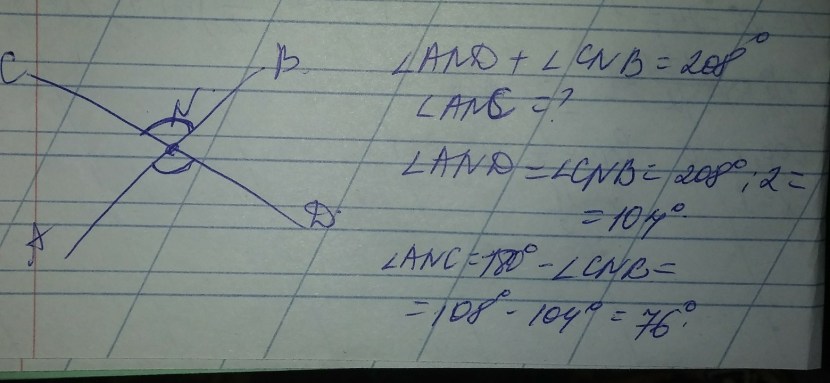 C
B
N
A
D
∠AND + ∠CNB = 208°
∠ANC = ?
∠AND = ∠CNB = 208° : 2 =
= 104°.
∠ANC = 180° - ∠CNB =
= 108° - 104° = 76°.